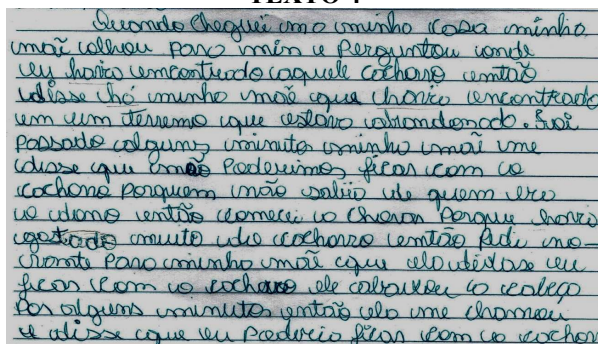 TEXTO 4
Quando cheguei na minha casa minha
mãe colhou para mim e perguntou onde
eu havia encontrado aquele cachorro então
disse há minha mãe que havia encontrado
em um terreno que estava abandonado. Foi
passado alguns minutos minha mãe me
disse que não poderimos ficar com o
cachorro porquem não sabia de quem era
o dono então comecei a chorar porque havia
gostado muito do cachorro então pedi no-
vamente para minha mãe que ela deixase eu
ficar com o cachorro ele abaixou a cabeça
por alguns minutos então ela me chamou
e disse que eu poderia ficar com o cachor